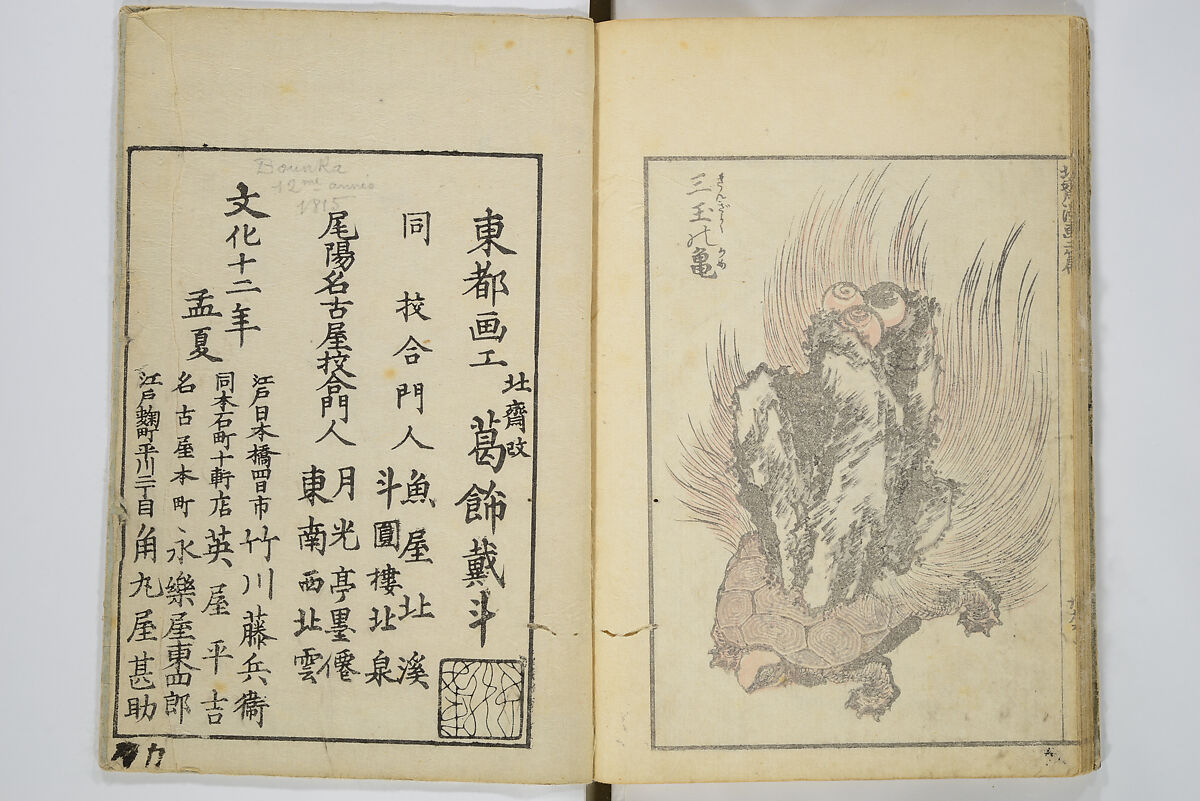 三玉の亀
さんぎよくのかめ
東都画工
北齋改
葛飾戴斗
同 挍合門人
魚屋北溪
斗圓樓北泉
尾陽名古屋挍合門人
月光亭墨僊
東南西北雲
Bounka
12me année
1815
文化十二年
孟夏
江戸日本橋四日市 竹川藤兵衞
同本石町十軒店 英屋平吉
名古屋本町 永樂屋東四郎
江戸麹町平川二丁目 角丸屋甚助